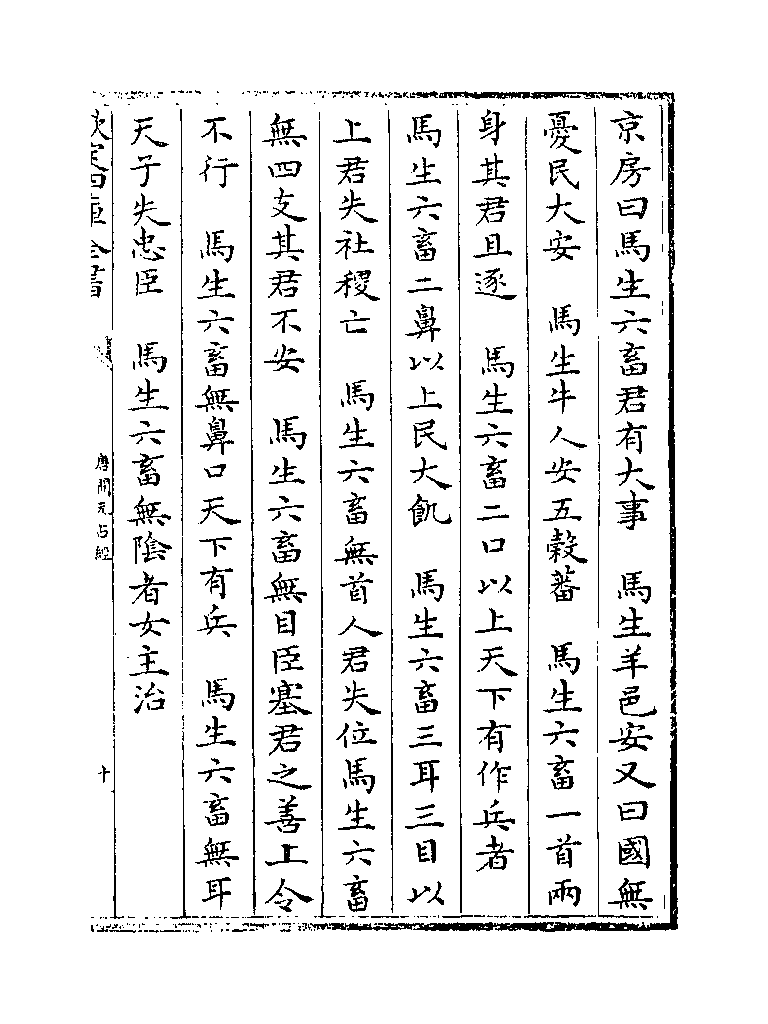 京房曰馬生六畜君有大事　馬生羊邑安又曰國無
憂民大安　馬生牛人安五穀蕃　馬生六畜一首兩
身其君且逐　馬生六畜二口以上天下有作兵者
馬生六畜二鼻以上民大飢　馬生六畜三耳三目以
上君失社稷亡　馬生六畜無首人君失位馬生六畜
無四支其君不安　馬生六畜無目臣塞君之善上令
不行　馬生六畜無鼻口天下有兵　馬生六畜無耳
天子失忠臣　馬生六畜無陰者女主治
欽定四庫全書
唐開元占經
十